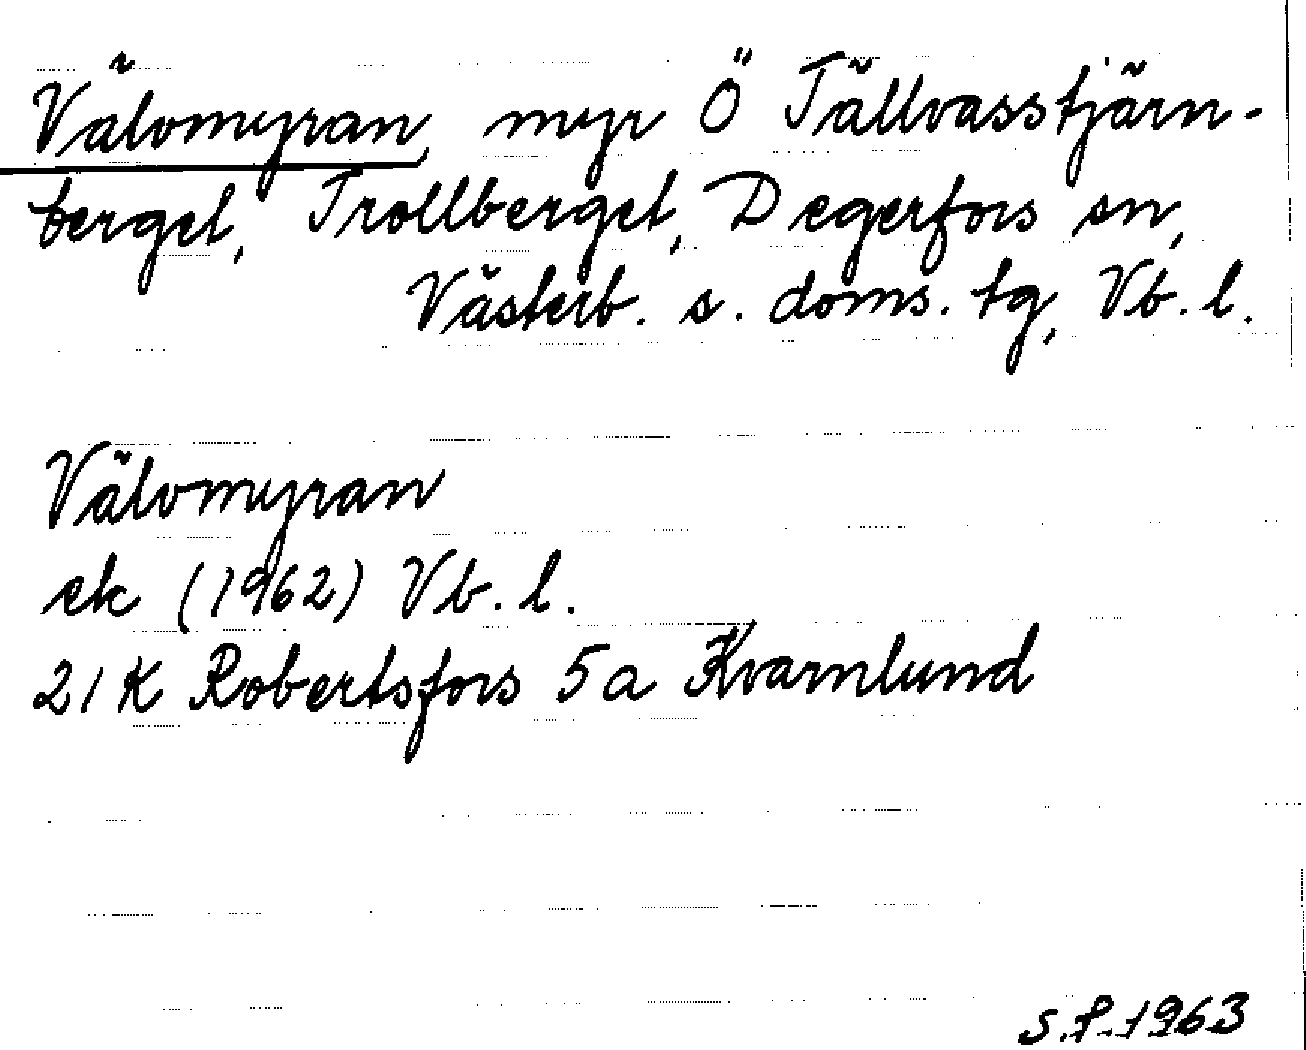 Välvomyran, myr Ö Tällvasstjärn-
berget, Trollberget, Degerfors sn,
Västerb. s. doms. tg, Vb. l.
Välvomyran
ek (1962) Vb. l.
21K Robertsfors 5a Kvarnlund
S.P. 1963